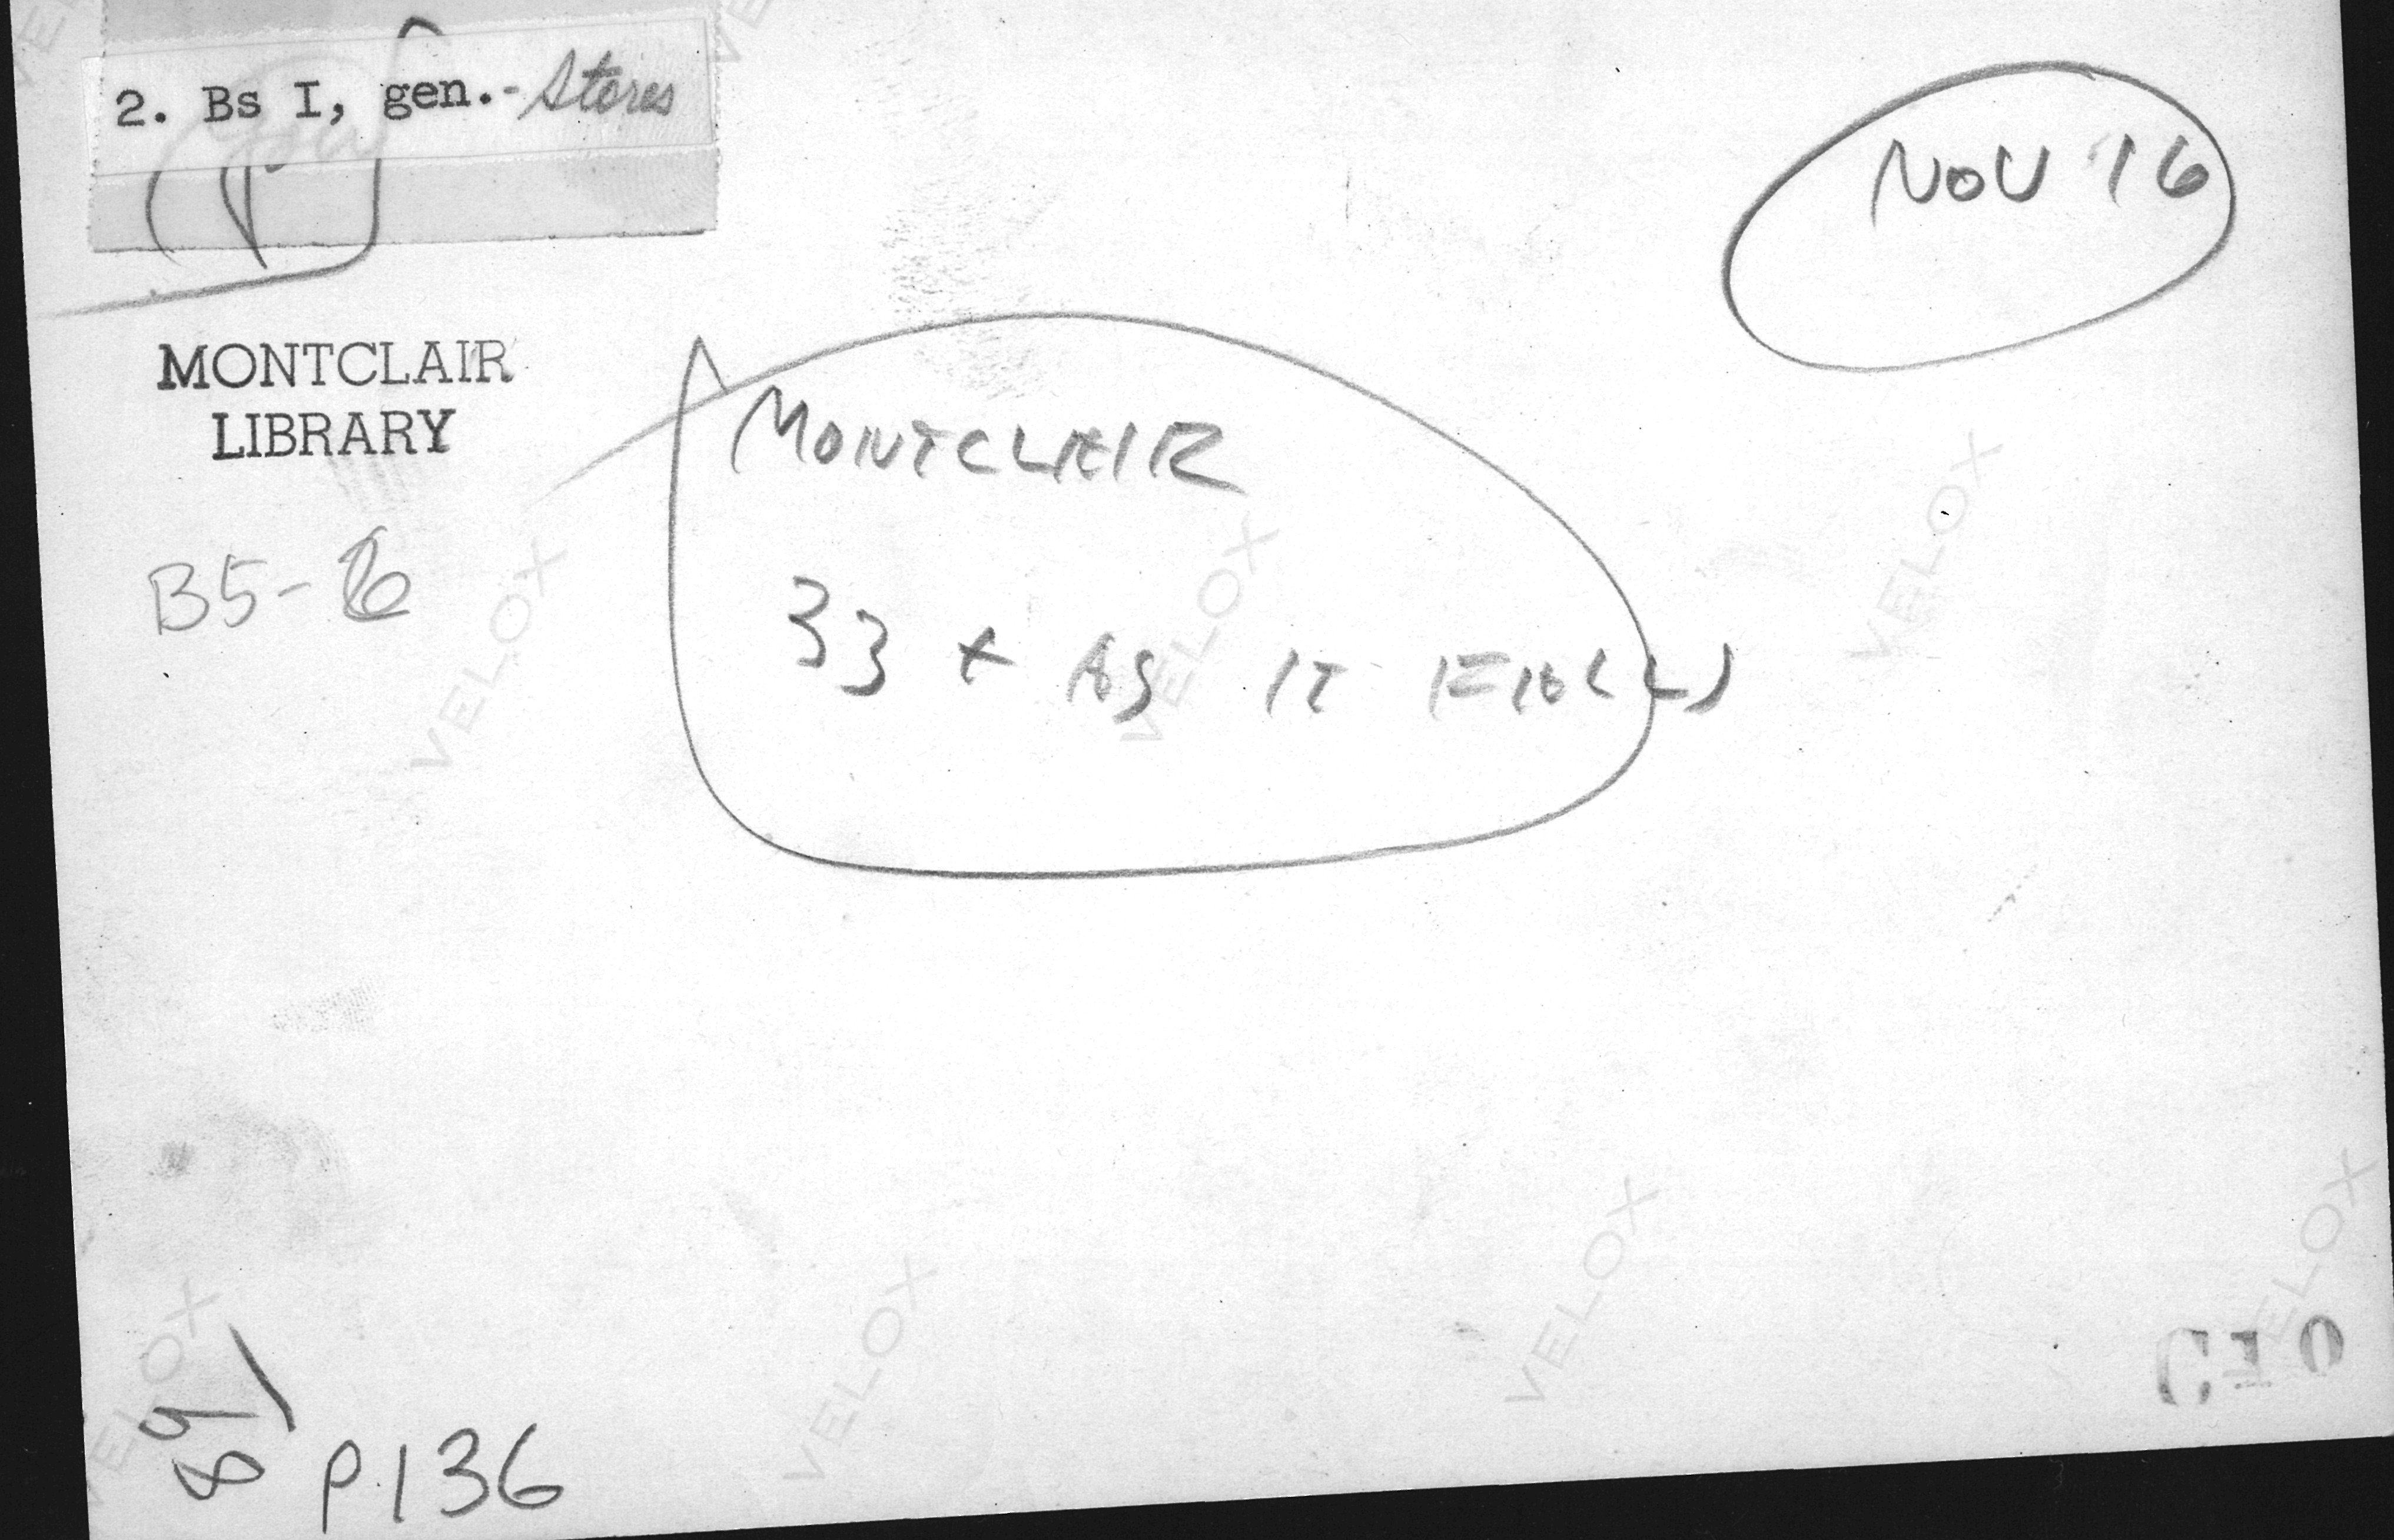 2. Bs I, gen.- Stores
NOV '16
MONTCLAIR
LIBRARY
MONTCLAIR
B5-6
33 x AS IT FALLS
VELOX
VELOX
VELOX
VELOX
VELOX
VELOX
VELOX
C10
85
p.136